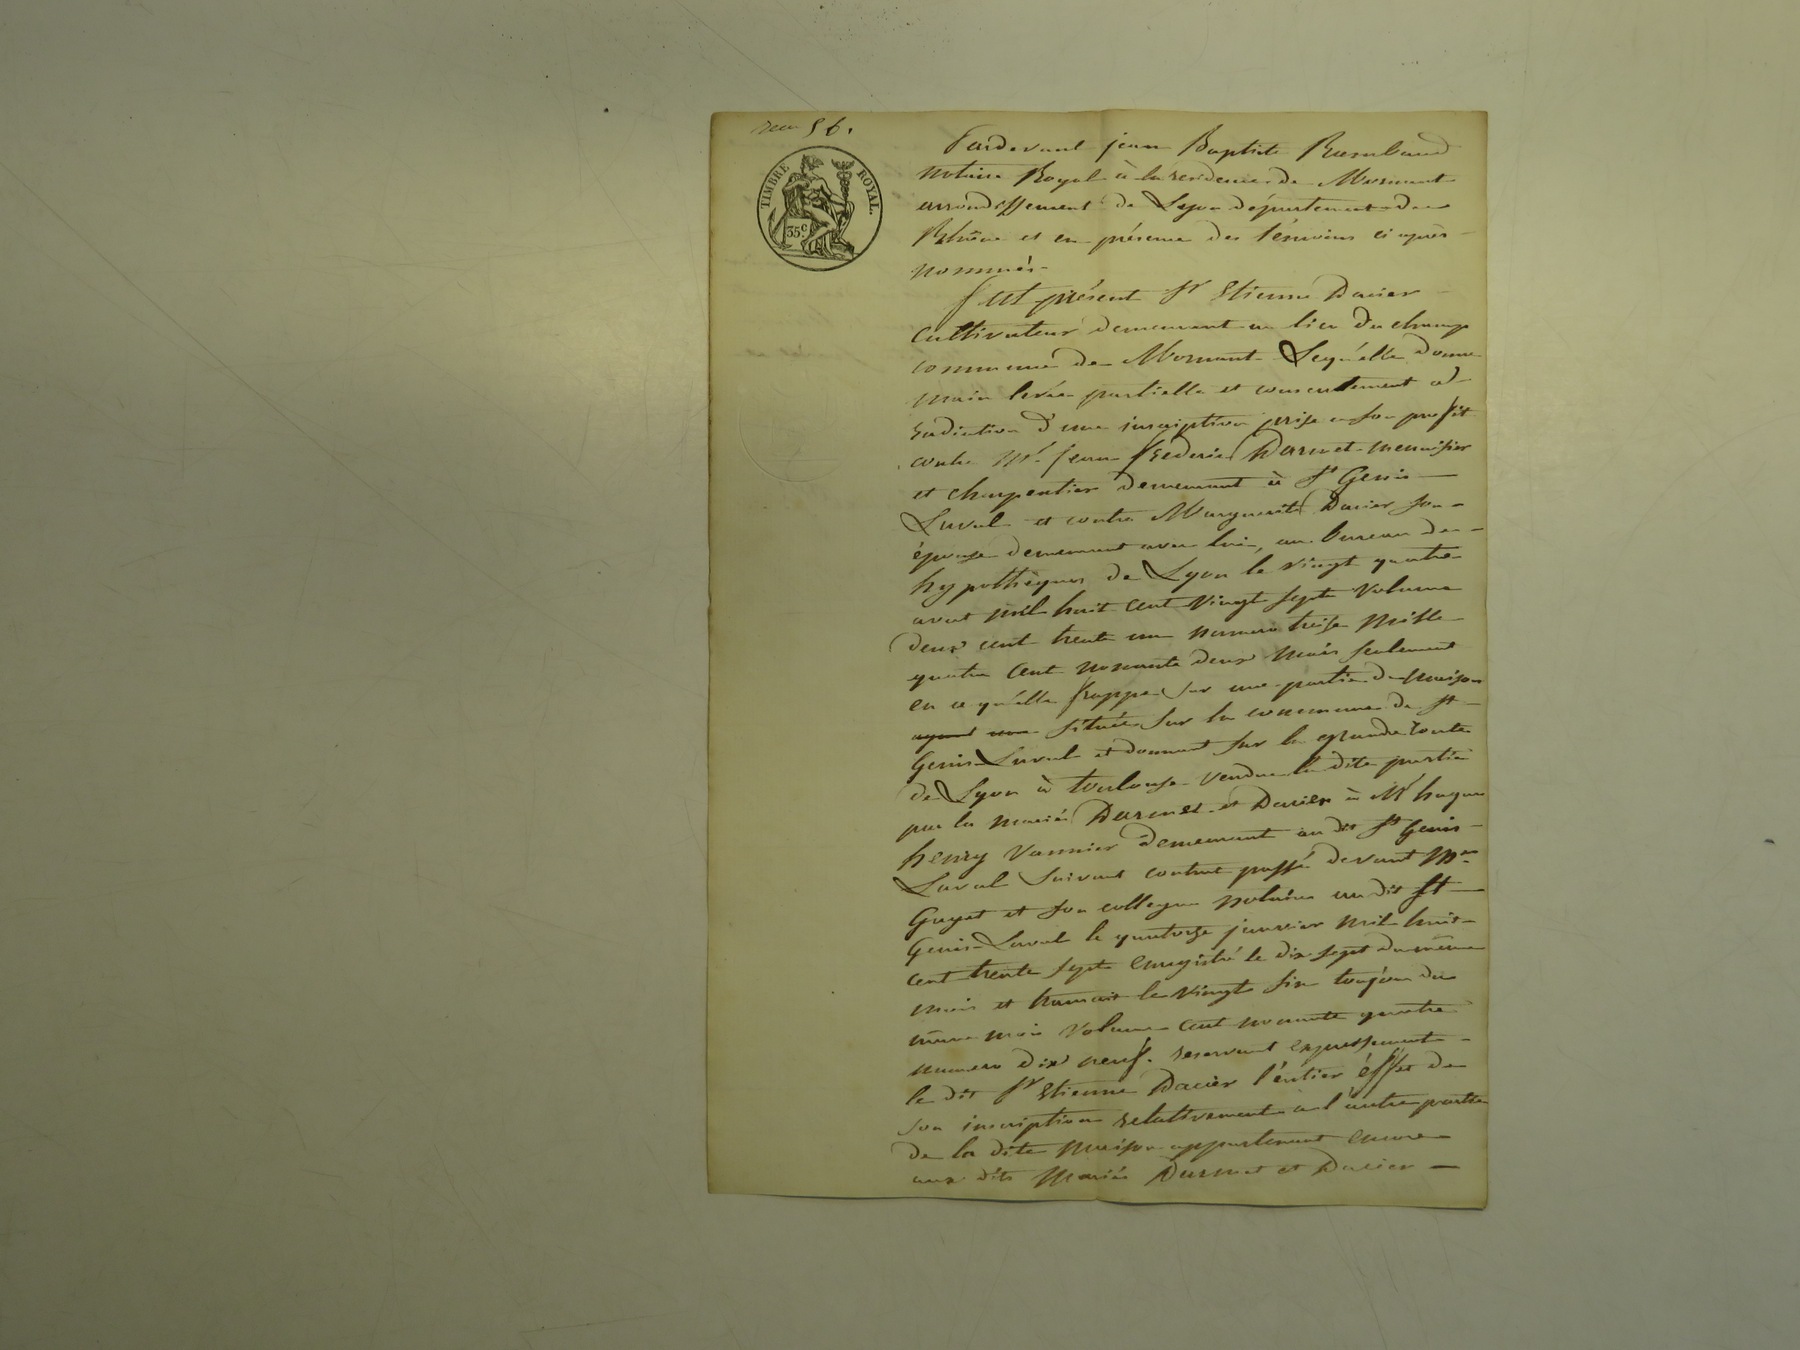 num 56.
TIMBRE ROYAL.
35 c.
Pardevant jean Baptiste
notaire Royal à la residence de Mornant
arrondissement de Lyon département du
Rhône et en présence des témoins ci après
nommés
fut présent Sr Etienne Dacier
cultivateur demeurant au lieu du champ
commune de Mornant Lequ'élle donne
main levée partielle et consentement a
radiation d'une inscription prise a son profit
contre Mr. jean frederic Darmet menuisier
et charpentier demeurant à St Genis
Laval et contre Marguerite Dacier son
épouse demeurant avec lui, au bureau des
hypothèques de Lyon le vingt quatre
avout mil huit cent vingt sept volume
deux cent trente un numero treise mille
quatre cent nonante deux mais seulement
en ce qu'élle frappe sur une partie de maison
située sur la commune de St
Genis Laval et donnant sur la grande route
de Lyon à toulouse vendue la dite partie
par les mariés Darmet et Dacier à Mr hugue
henry Vannier demeurant au dit St Genis
Laval suivant contrat passé devant Me
Guyot et son collegue notaire au dit St
Genis Laval le quatorze janvier mil huit
cent trente sept enregistré le dix sept du même
mois et transcrit le vingt six toujour du
même mois volume cent nonante quatre
numero dix neuf. reservant expressement
le dit Sr Etienne Dacier l'éntier éffet de
son inscription relativement a l'autre partie
de la dite maison appartenant encore
aux dits mariés Darmet et Dacier